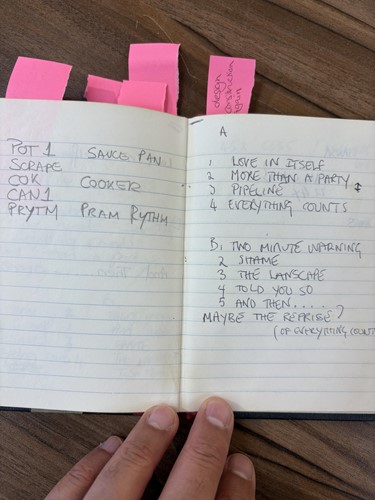 design
construction
again
POT 1 SAUCE PAN
SCRAPE
COK COOKER
CAN1
PRYTM PRAM RYTHM
A
1 LOVE IN ITSELF
2 MORE THAN A PARTY
3 PIPELINE
4 EVERYTHING COUNTS
B. 1 TWO MINUTE WARNING
2 SHAME
3 THE LANSCAPE
4 TOLD YOU SO
5 AND THEN....
MAYBE THE REPRISE?
(OF EVERYTING COUNT